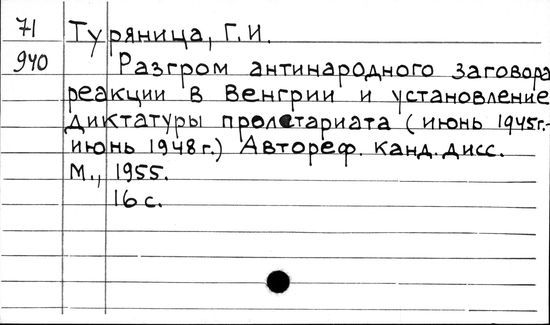 71 Туряница, Г.И.
940 Разгром антинародного заговора
реакции в Венгрии и установление
диктатуры пролетариата (июнь 1945г.-
июнь 1948г.) Автореф. канд. дисс.
М., 1955.
16 с.